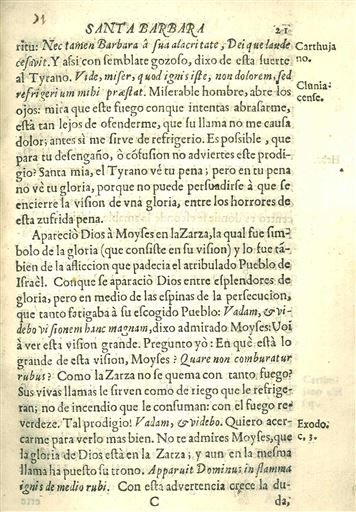 SANTA BARBARA 21
ritu: Nec tamen Barbara à sua alacritate, Dei que laude Carthuja
cesavit. Y assi con semblate gozoso, dixo de esta suerte no.
al Tyrano. Vide, miser, quod ignis iste, non dolorem, sed
refrigerium mihi præstat. Miserable hombre, abre los Clunia-
ojos: mira que este fuego conque intentas abrasarme, cense.
está tan lejos de ofenderme, que su llama no me causa
dolor; antes si me sirve de refrigerio. Es possible, que
para tu desengaño, ò cófusion no adviertes este prodi-
gio? Santa mia, el Tyrano vé tu pena; pero en tu pena
no vé tu gloria, porque no puede persuadirse à que se
encierre la vision de vna gloria, entre los horrores de
esta zufrida pena.
Apareciò Diòs à Moyses en la Zarza, la qual fue sim-
bolo de la gloria (que consiste en su vision) y lo fue tá-
bien de la afliccion que padecia el atribulado Pueblo de
Israèl. Conque se apareciò Dios entre esplendores de
gloria, pero en medio de las espinas de la persecucion,
que tanto fatigaba à su escogido Pueblo: Vadam, & vi-
debo visionem hanc magnam, dixo admirado Moyses: Voi
à ver esta vision grande. Pregunto yò: En què està lo
grande de esta vision, Moyses? Quare non comburatur
rubus? Como la Zarza no se quema con tanto fuego?
Sus vivas llamas le sirven como de riego que le refrige-
ran; no de incendio que le consuman: con el fuego re-
verdeze. Tal prodigio! Vadam, & videbo. Quiero acer- Exodo.
carme para verlo mas bien. No te admires Moyses, que c. 3.
la gloria de Diòs està en la Zarza; y aun en la mesma
llama ha puesto su trono. Apparuit Dominus in flamma
ignis de medio rubi. Con esta advertencia crece la du-
C da,